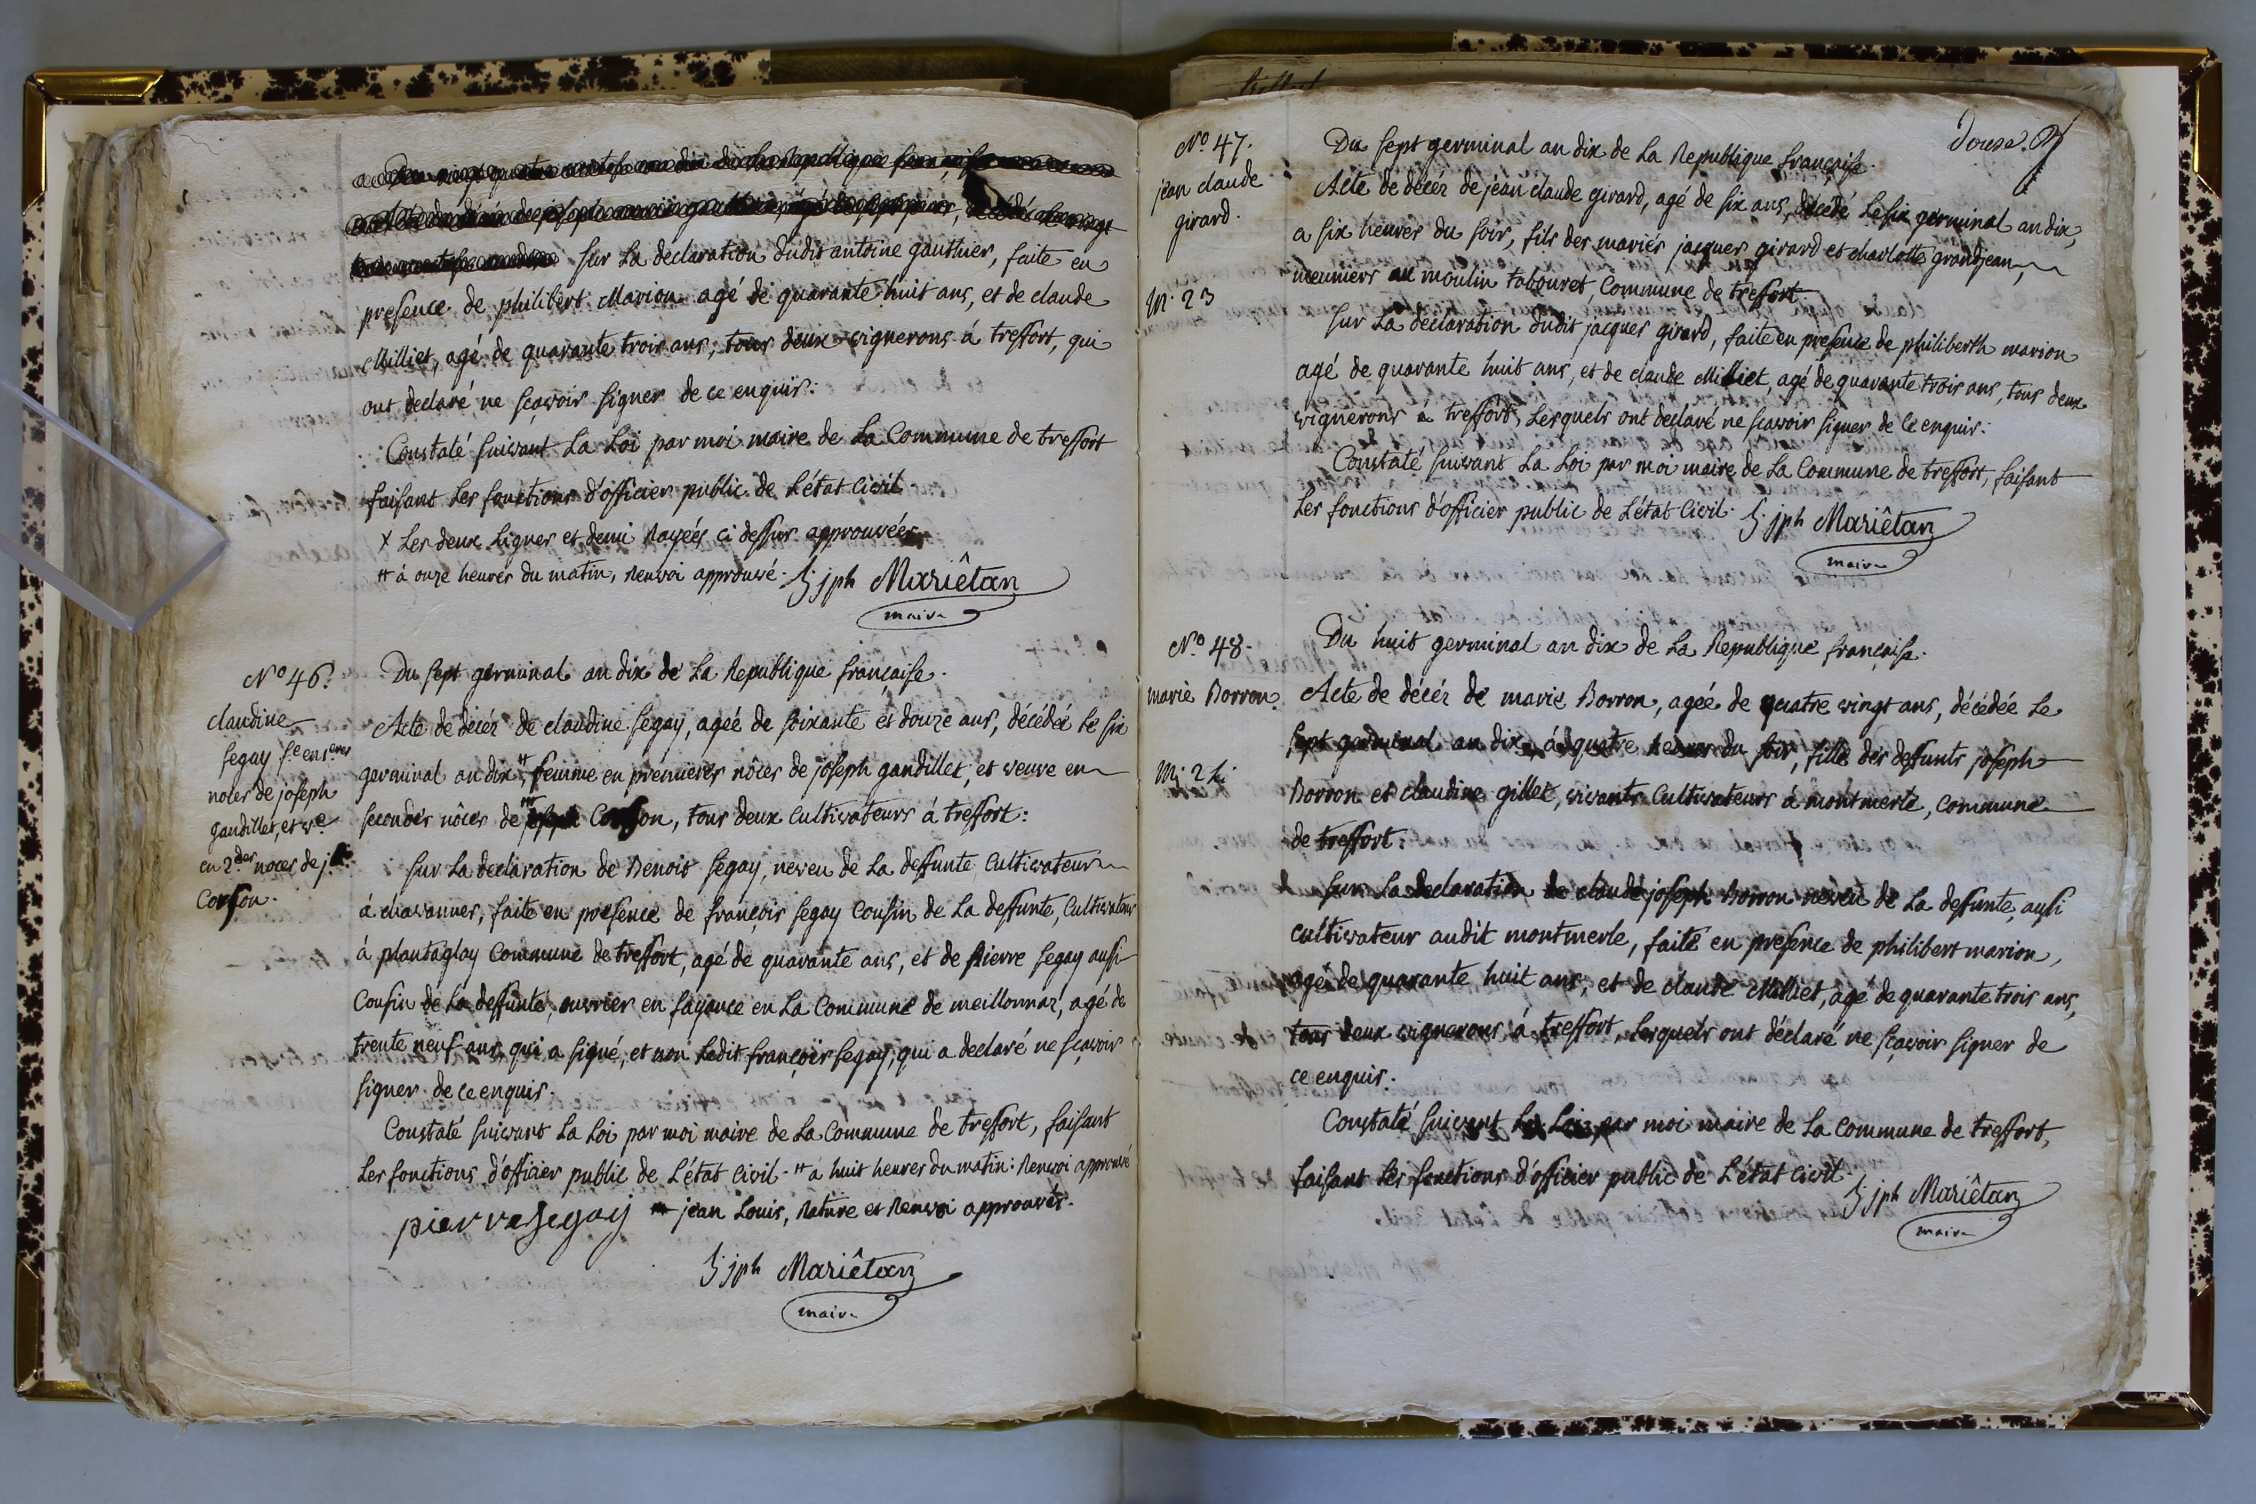 sur La déclaration dudit antoine gauthier, faite en
presence de philibert Marion agé de quarante huit ans, et de claude
Milliet, agé de quarante trois ans, tous deux vignerons à treffort, qui
ont declaré ne sçavoir signer de ce enquis:
Constaté suivant La Loi par moi maire de La Commune de treffort
faisant Les fonctions d'officier public de L'état Civil.
X Les deux Lignes et demi Rayeés ci dessus approuvées
# à onze heures du matin, Renvoi approuvé. jph Mariêtan
maire
N° 46.
claudine
segay fe en 1eres
noces de joseph
gandillet, et ve
en 2des noces de j. L.
Corson.
Du sept germinal an dix de La Republique française.
Acte de décéz de claudine segay, ageé de soixante et douze ans, décédeé Le six
germinal an dix #, femme en premieres nôces de joseph gandillet, et veuve en
secondes nôces de Corson, tous deux Cultivateurs à treffort:
sur La declaration de Benoit segay, neveu de La deffunte Cultivateur
à chavannes, faite en presence de françois segay Cousin de La deffunte, Cultivateur
à plantaglay Commune de treffort, agé de quarante ans, et de pierre segay aussi
Cousin de La deffunte, ouvrier en fayance en La Commune de meillonnaz, agé de
trente neuf ans, qui a signé, et non Ledit françois segay, qui a declaré ne sçavoir
signer de ce enquis.
Constaté suivant La Loi par moi maire de La Commune de treffort, faisant
Les fonctions d'officier public de L'état Civil. # a huit heures du matin: Renvoi approuvé
pierre segay jean Louis, Rature et Renvoi approuvés.
jph Mariêtan
maire
Douze.
N° 47.
jean claude
girard.
M. 23
Du sept germinal an dix de La Republique française.
Acte de décéz de jean claude girard, agé de six ans, décédé Le six germinal an dix,
a six heures du soir, fils des mariés jacques girard et charlotte grandjean,
meuniers au moulin tabouret, Commune de treffort
sur La declaration dudit jacques girard, faite en presence de philiberth marion
agé de quarante huit ans, et de claude Milliet, agé de quarante trois ans, tous deux
vignerons à treffort, Lesquels ont declaré ne scavoir signer de Ce enquis:
Constaté suivant La Loi par moi maire de La Commune de treffort, faisant
Les fonctions d'officier public de L'état Civil. jph Mariêtan
maire
N° 48.
marie Borron
Du huit germinal an dix de La Republique française.
Acte de décéz de marie Borron, ageé de quatre vingt ans, décédée Le
sept germinal an dix, à quatre heures du soir, fille des deffunts joseph
Borron et claudine gillet, vivants Cultivateurs à montmerle, Commune
de treffort:
sur La declaration de claude joseph Borron neveu de La deffunte, aussi
cultivateur audit montmerle, faite en presence de philibert marion,
agé de quarante huit ans, et de claude Milliet, agé de quarante trois ans,
tous deux vignerons à treffort, Lesquels ont déclaré ne sçavoir signer de
ce enquis.
Constaté suivant La Loi par moi maire de La Commune de treffort,
faisant Les fonctions d'officier public de L'état Civil.
jph Mariêtan
maire